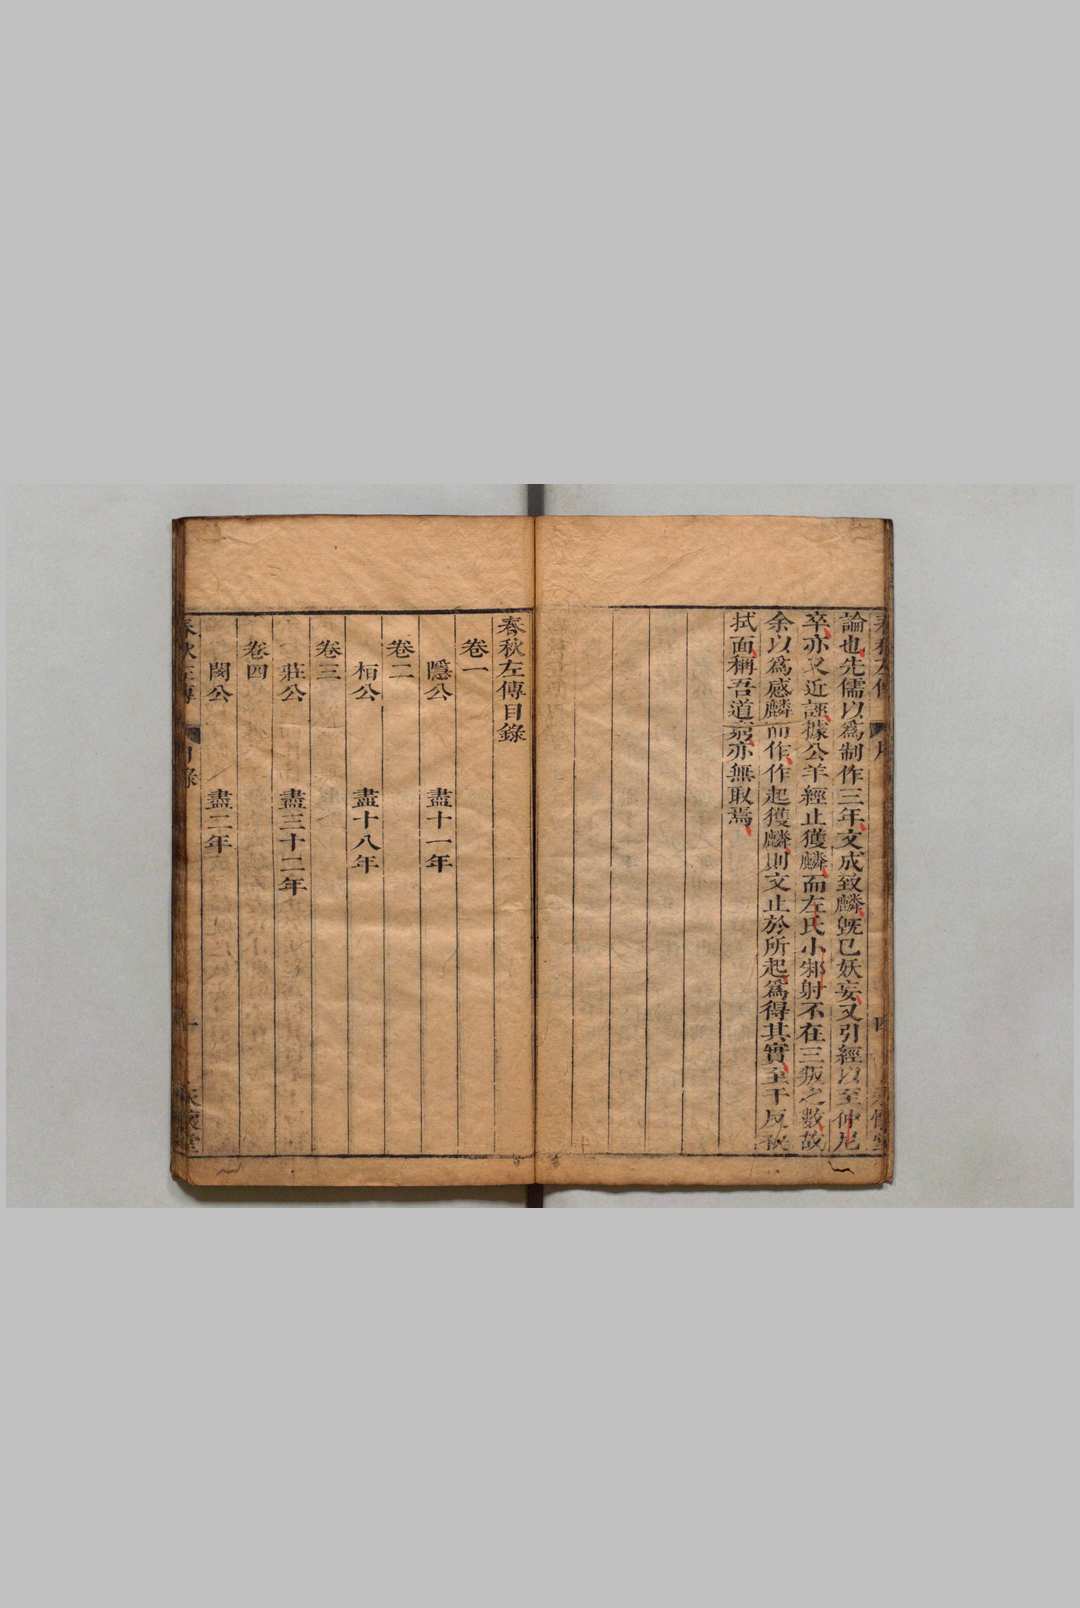 論也先儒以爲制作三年文成致麟旣已妖妄又引經以至仲尼
卒亦又近誣據公羊經止獲麟而左氏小邾射不在三叛之數故
余以爲感麟而作作起獲麟則文止於所起爲得其實至于反袂
拭面稱吾道窮亦無取焉
春秋左傳目錄
卷一
隱公 盡十一年
卷二
桓公 盡十八年
卷三
莊公 盡三十二年
卷四
閔公 盡二年
春秋左傳 目錄 一